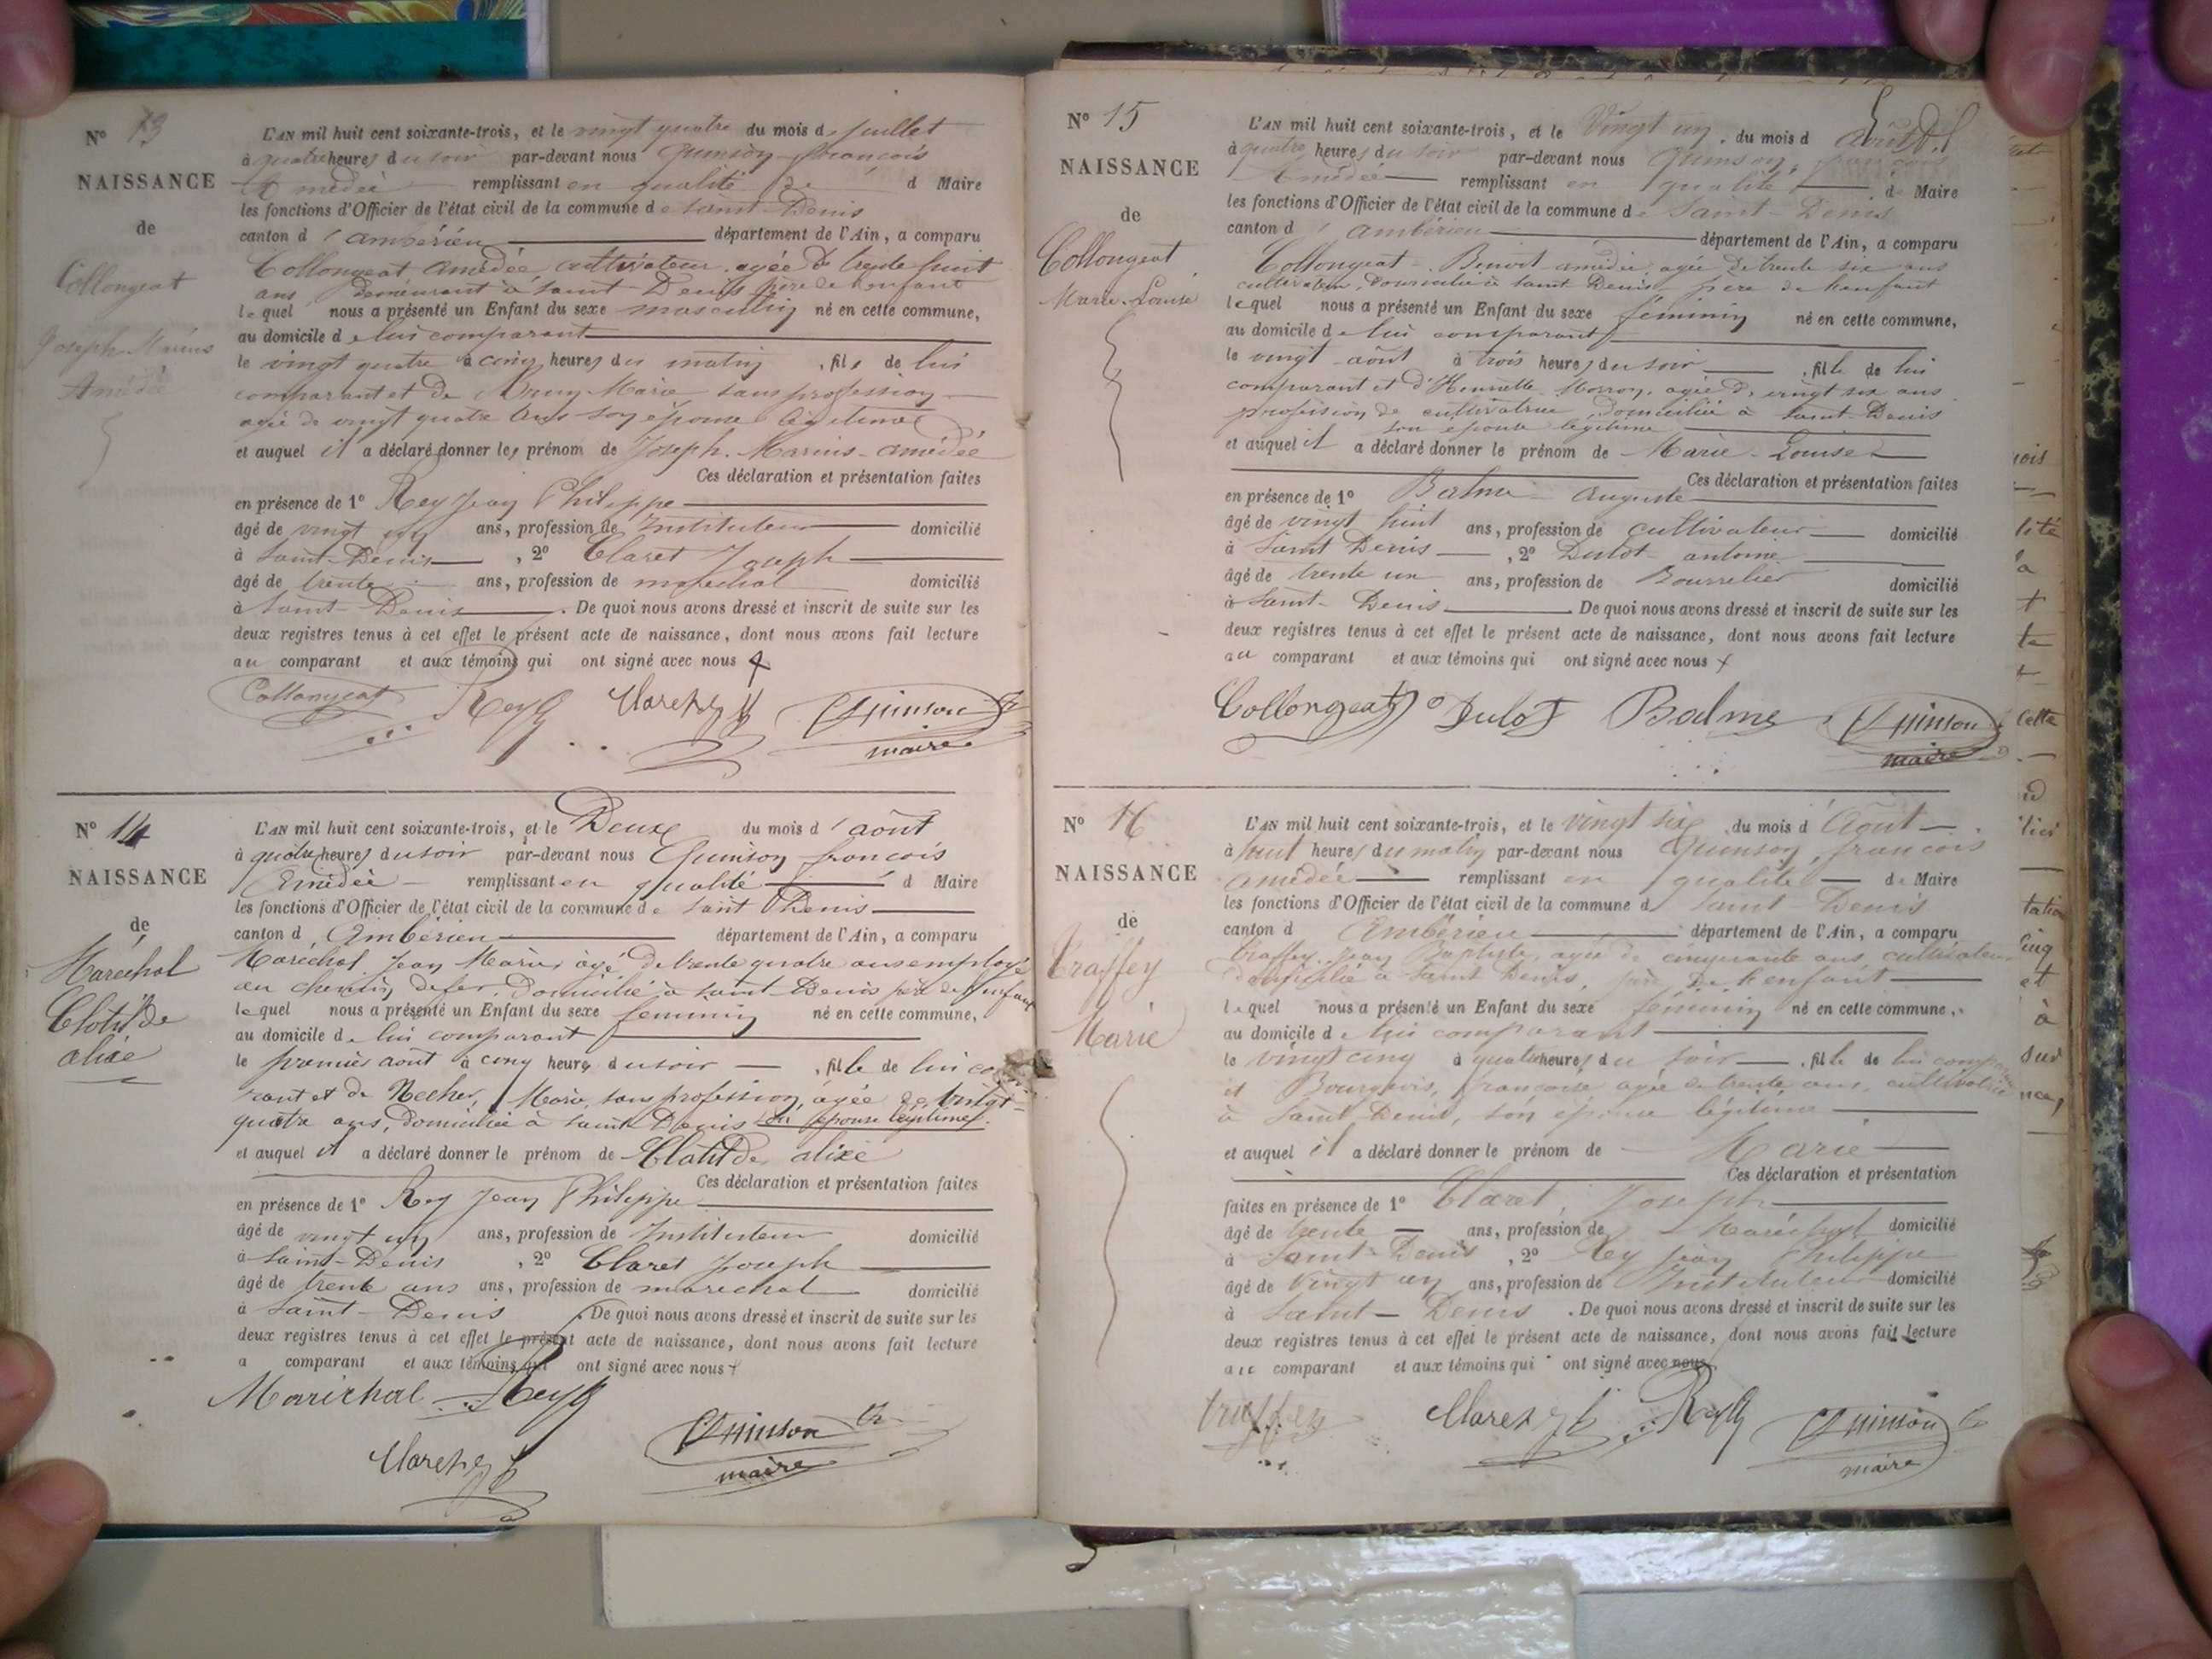 N° 13
NAISSANCE
de
Collongeat
Joseph Marius
Amédée
L'AN mil huit cent soixante-trois, et le vingt quatre du mois de juillet
à quatre heures du soir par-devant nous Quinson françois
Amédée remplissant en qualité de d Maire
les fonctions d'Officier de l'état civil de la commune de Saint-Denis
canton d'ambérieu département de l'Ain, a comparu
Collongeat amédée, cultivateur, agée de trente huit
ans, demeurant à Saint-Denis père de l'enfant
lequel nous a présenté un Enfant du sexe masculin né en cette commune,
au domicile de lui comparant
le vingt quatre à cinq heures du matin, fils de lui
comparant et de Marie sans profession
agée de vingt quatre ans son épouse légitime
et auquel il a déclaré donner les prénom de Joseph-Marius-amédée
Ces déclaration et présentation faites
en présence de 1° Rey Jean Philippe
âgé de vingt un ans, profession de Instituteur domicilié
à Saint-Denis, 2° Claret Joseph
âgé de trente ans, profession de maréchal domicilié
à Saint-Denis. De quoi nous avons dressé et inscrit de suite sur les
deux registres tenus à cet effet le présent acte de naissance, dont nous avons fait lecture
au comparant et aux témoins qui ont signé avec nous
Collongeat Rey Claret J Quinson
maire
N° 14
NAISSANCE
de
Maréchal
Clotilde
alixe
L'AN mil huit cent soixante-trois, et le Deux du mois d'août
à quatre heures du soir par-devant nous Quinson françois
Amédée remplissant en qualité d Maire
les fonctions d'Officier de l'état civil de la commune de Saint Denis
canton d'Ambérieu département de l'Ain, a comparu
Maréchal Jean Marie, âgé de trente quatre ans employé
au chemin de fer, Domicilié à Saint-Denis père de l'enfant
lequel nous a présenté un Enfant du sexe féminin né en cette commune,
au domicile de lui comparant
le premier août à cinq heures du soir, fille de lui
rant et de Necher, Marie, sans profession, agée de vingt-
quatre ans, Domiciliée à Saint Denis son épouse légitime.
et auquel il a déclaré donner le prénom de Clotilde alixe
Ces déclaration et présentation faites
en présence de 1° Rey Jean Philippe
âgé de vingt un ans, profession de Instituteur domicilié
à Saint-Denis, 2° Claret Joseph
âgé de trente ans ans, profession de maréchal domicilié
à Saint-Denis. De quoi nous avons dressé et inscrit de suite sur les
deux registres tenus à cet effet le présent acte de naissance, dont nous avons fait lecture
a comparant et aux témoins qui ont signé avec nous
Maréchal Rey
Claret J Quinson
maire
N° 15
NAISSANCE
de
Collongeat
Marie-Louise
L'AN mil huit cent soixante-trois, et le Vingt un, du mois d'août
à quatre heures du soir par-devant nous Quinson, françois
Amédée remplissant en qualité de Maire
les fonctions d'Officier de l'état civil de la commune de Saint-Denis
canton d'ambérieu département de l'Ain, a comparu
Collongeat-Benoit amédée, agée de trente six ans
cultivateur, Domicilié à Saint Denis père de l'enfant
lequel nous a présenté un Enfant du sexe féminin né en cette commune,
au domicile de lui comparant
le vingt août à trois heures du soir, fille de lui
comparant et d'Henriette Morron, agée de vingt six ans
profession de cultivatrice, Domiciliée à Saint-Denis
son épouse légitime
et auquel il a déclaré donner le prénom de Marie-Louise
Ces déclaration et présentation faites
en présence de 1° Balme auguste
âgé de vingt huit ans, profession de cultivateur domicilié
à Saint Denis, 2° Dulot antoine
âgé de trente un ans, profession de Bourrelier domicilié
à Saint-Denis. De quoi nous avons dressé et inscrit de suite sur les
deux registres tenus à cet effet le présent acte de naissance, dont nous avons fait lecture
au comparant et aux témoins qui ont signé avec nous
Collongeat Dulot Balme Quinson
maire
N° 16
NAISSANCE
de
Traffey
Marie
L'AN mil huit cent soixante-trois, et le vingt six, du mois d'Août
à huit heures du matin par-devant nous Quinson, françois
amédée remplissant en qualité de Maire
les fonctions d'Officier de l'état civil de la commune d Saint-Denis
canton d Ambérieu département de l'Ain, a comparu
Traffey Jean Baptiste, agée de cinquante ans, cultivateur
Domicilié à Saint Denis, père de l'enfant
lequel nous a présenté un Enfant du sexe féminin né en cette commune,
au domicile de lui comparant
le vingt cinq à quatre heures du soir, fille de lui
et Bourgeois, françoise agée de trente ans, cultivatrice
à Saint Denis, son épouse légitime
et auquel il a déclaré donner le prénom de Marie
Ces déclaration et présentation
faites en présence de 1° Claret, Joseph
âgé de trente ans, profession de Maréchal domicilié
à Saint-Denis, 2° Rey Jean Philippe
âgé de Vingt un ans, profession de Instituteur domicilié
à Saint-Denis. De quoi nous avons dressé et inscrit de suite sur les
deux registres tenus à cet effet le présent acte de naissance, dont nous avons fait lecture
au comparant et aux témoins qui ont signé avec nous
Claret J Rey Quinson
maire